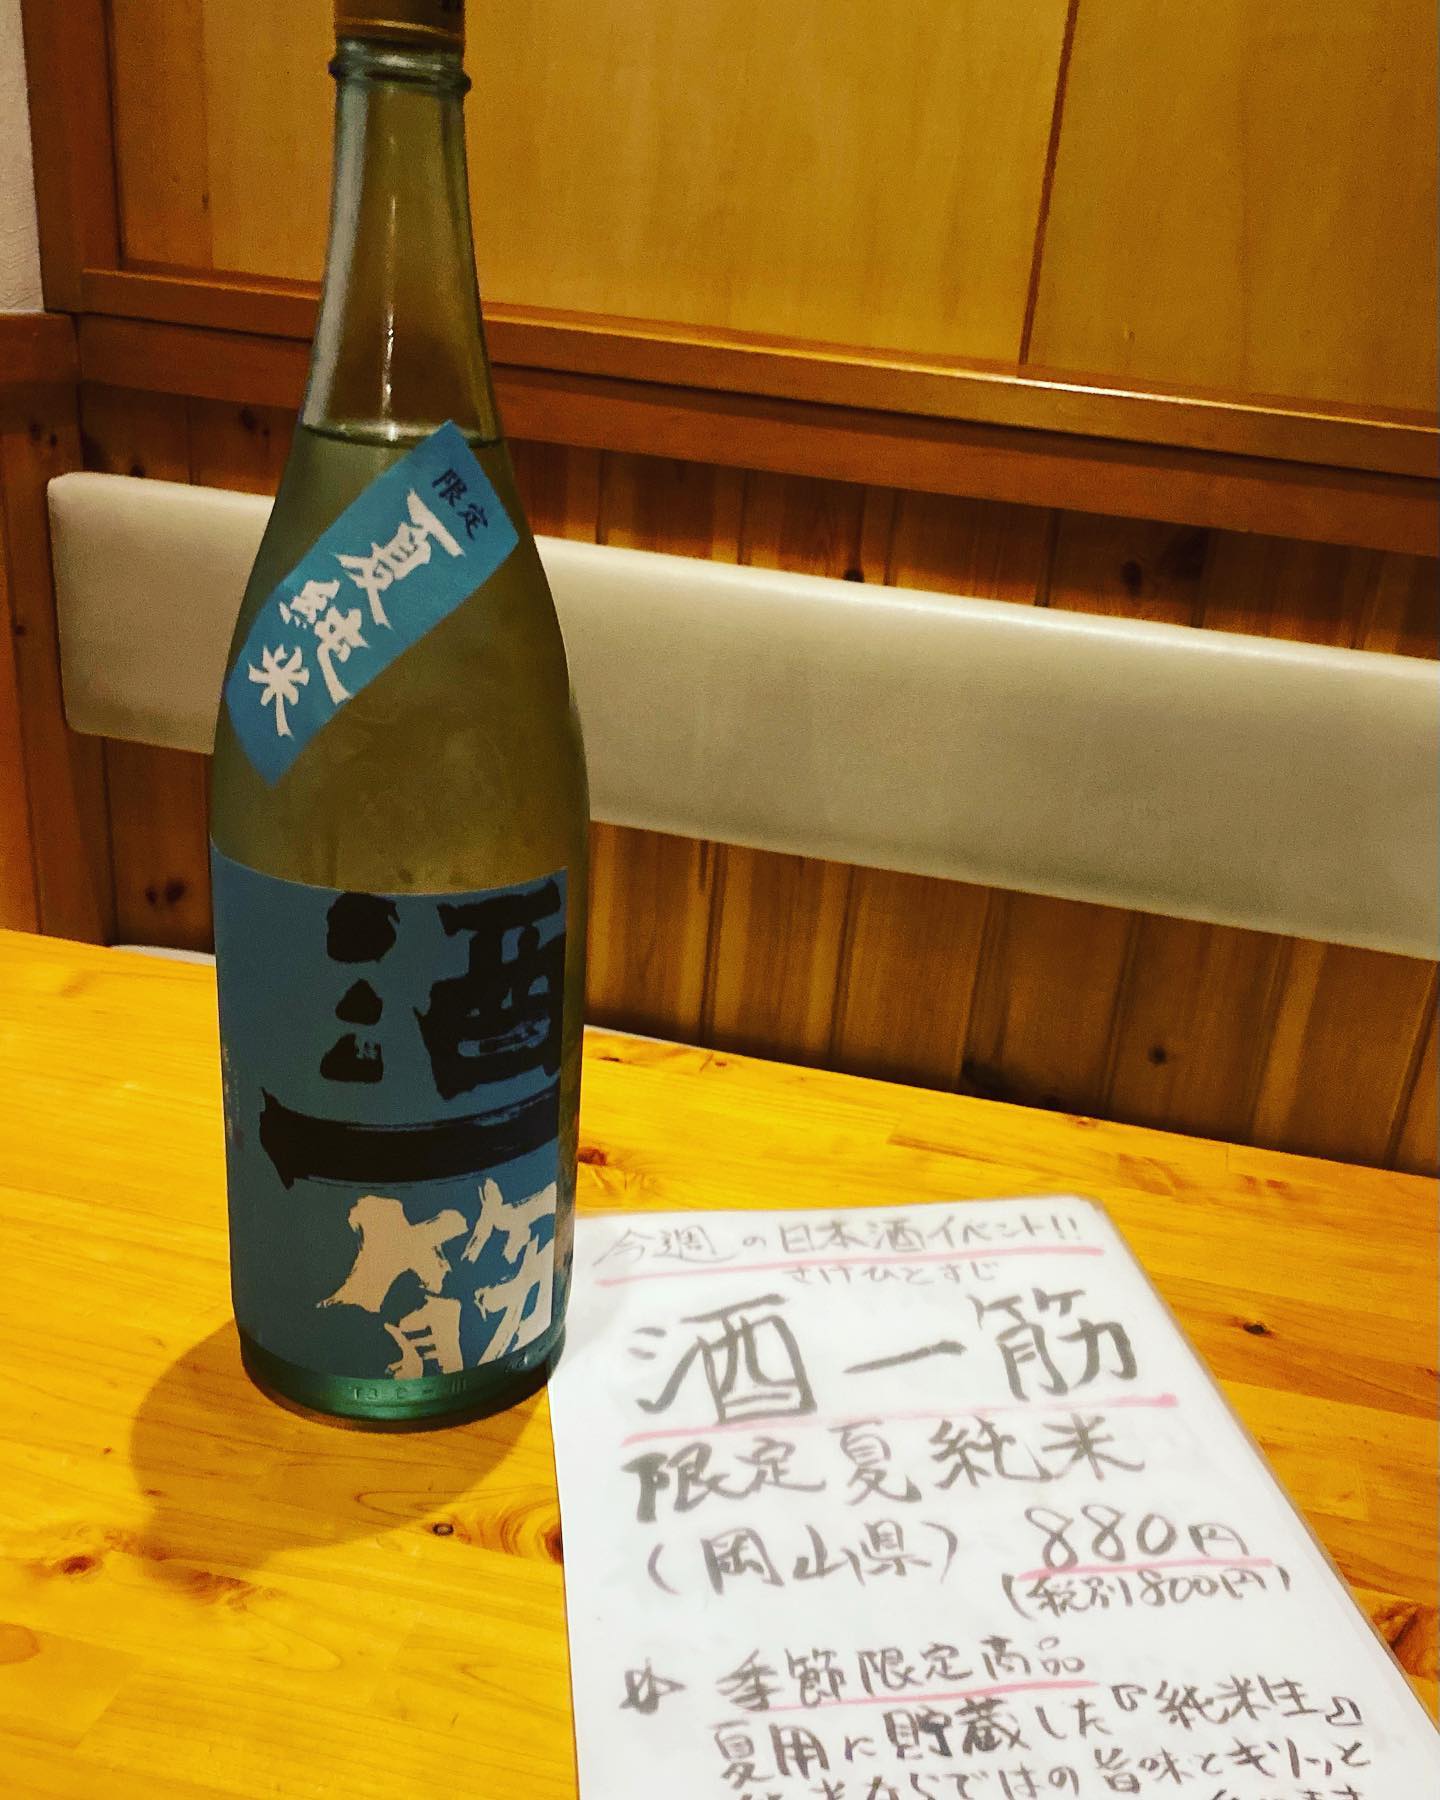 限定
夏純米
酒一筋
今週の日本酒イベント!!
さけひとすじ
酒一筋
限定夏純米
(岡山県) 880円
(税別800円)
季節限定商品
夏用に貯蔵した『純米生』
ならではの旨味とキリッと